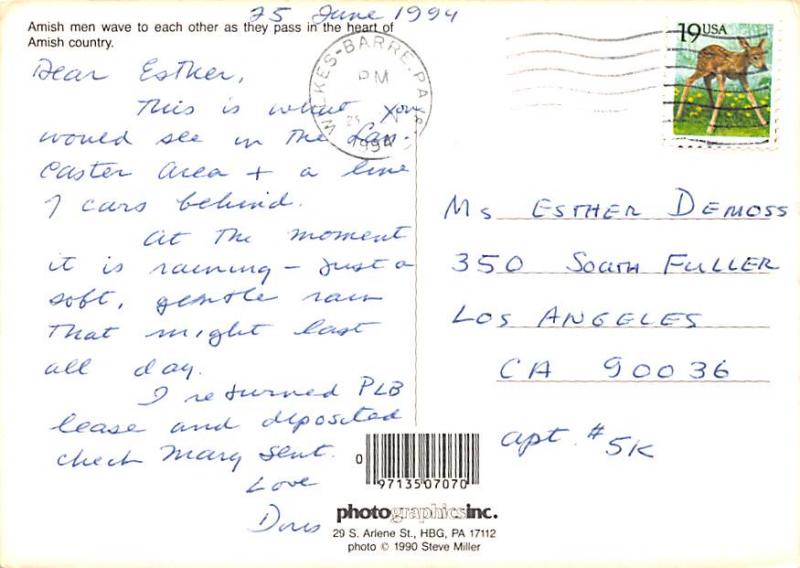 25 June 1994
Amish men wave to each other as they pass in the heart of
Amish country.
Dear Esther,
This is what you
would see in the Lan-
caster area + a line
of cars behind.
At the moment
it is raining - just a
soft, gentle rain
that might last
all day.
I returned PLB
lease and deposited
check Mary sent.
Love
Doris
WILKES-BARRE, PA
PM
25
1994
19 USA
Ms ESTHER DEMOSS
350 SOUTH FULLER
LOS ANGELES
CA 90036
apt. #5K
0 9713507070
photographicsinc.
29 S. Arlene St., HBG, PA 17112
photo © 1990 Steve Miller